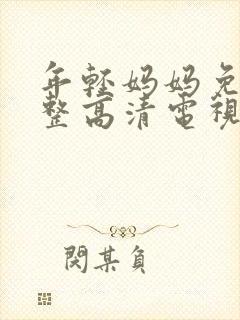 年輕妈妈免
整高清電視
閔某負